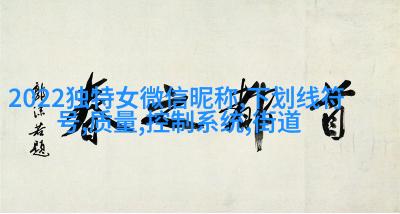 2022独特女微信昵称,下划线符
号,质量,控制系统,街道
首都之春
郭沫若题